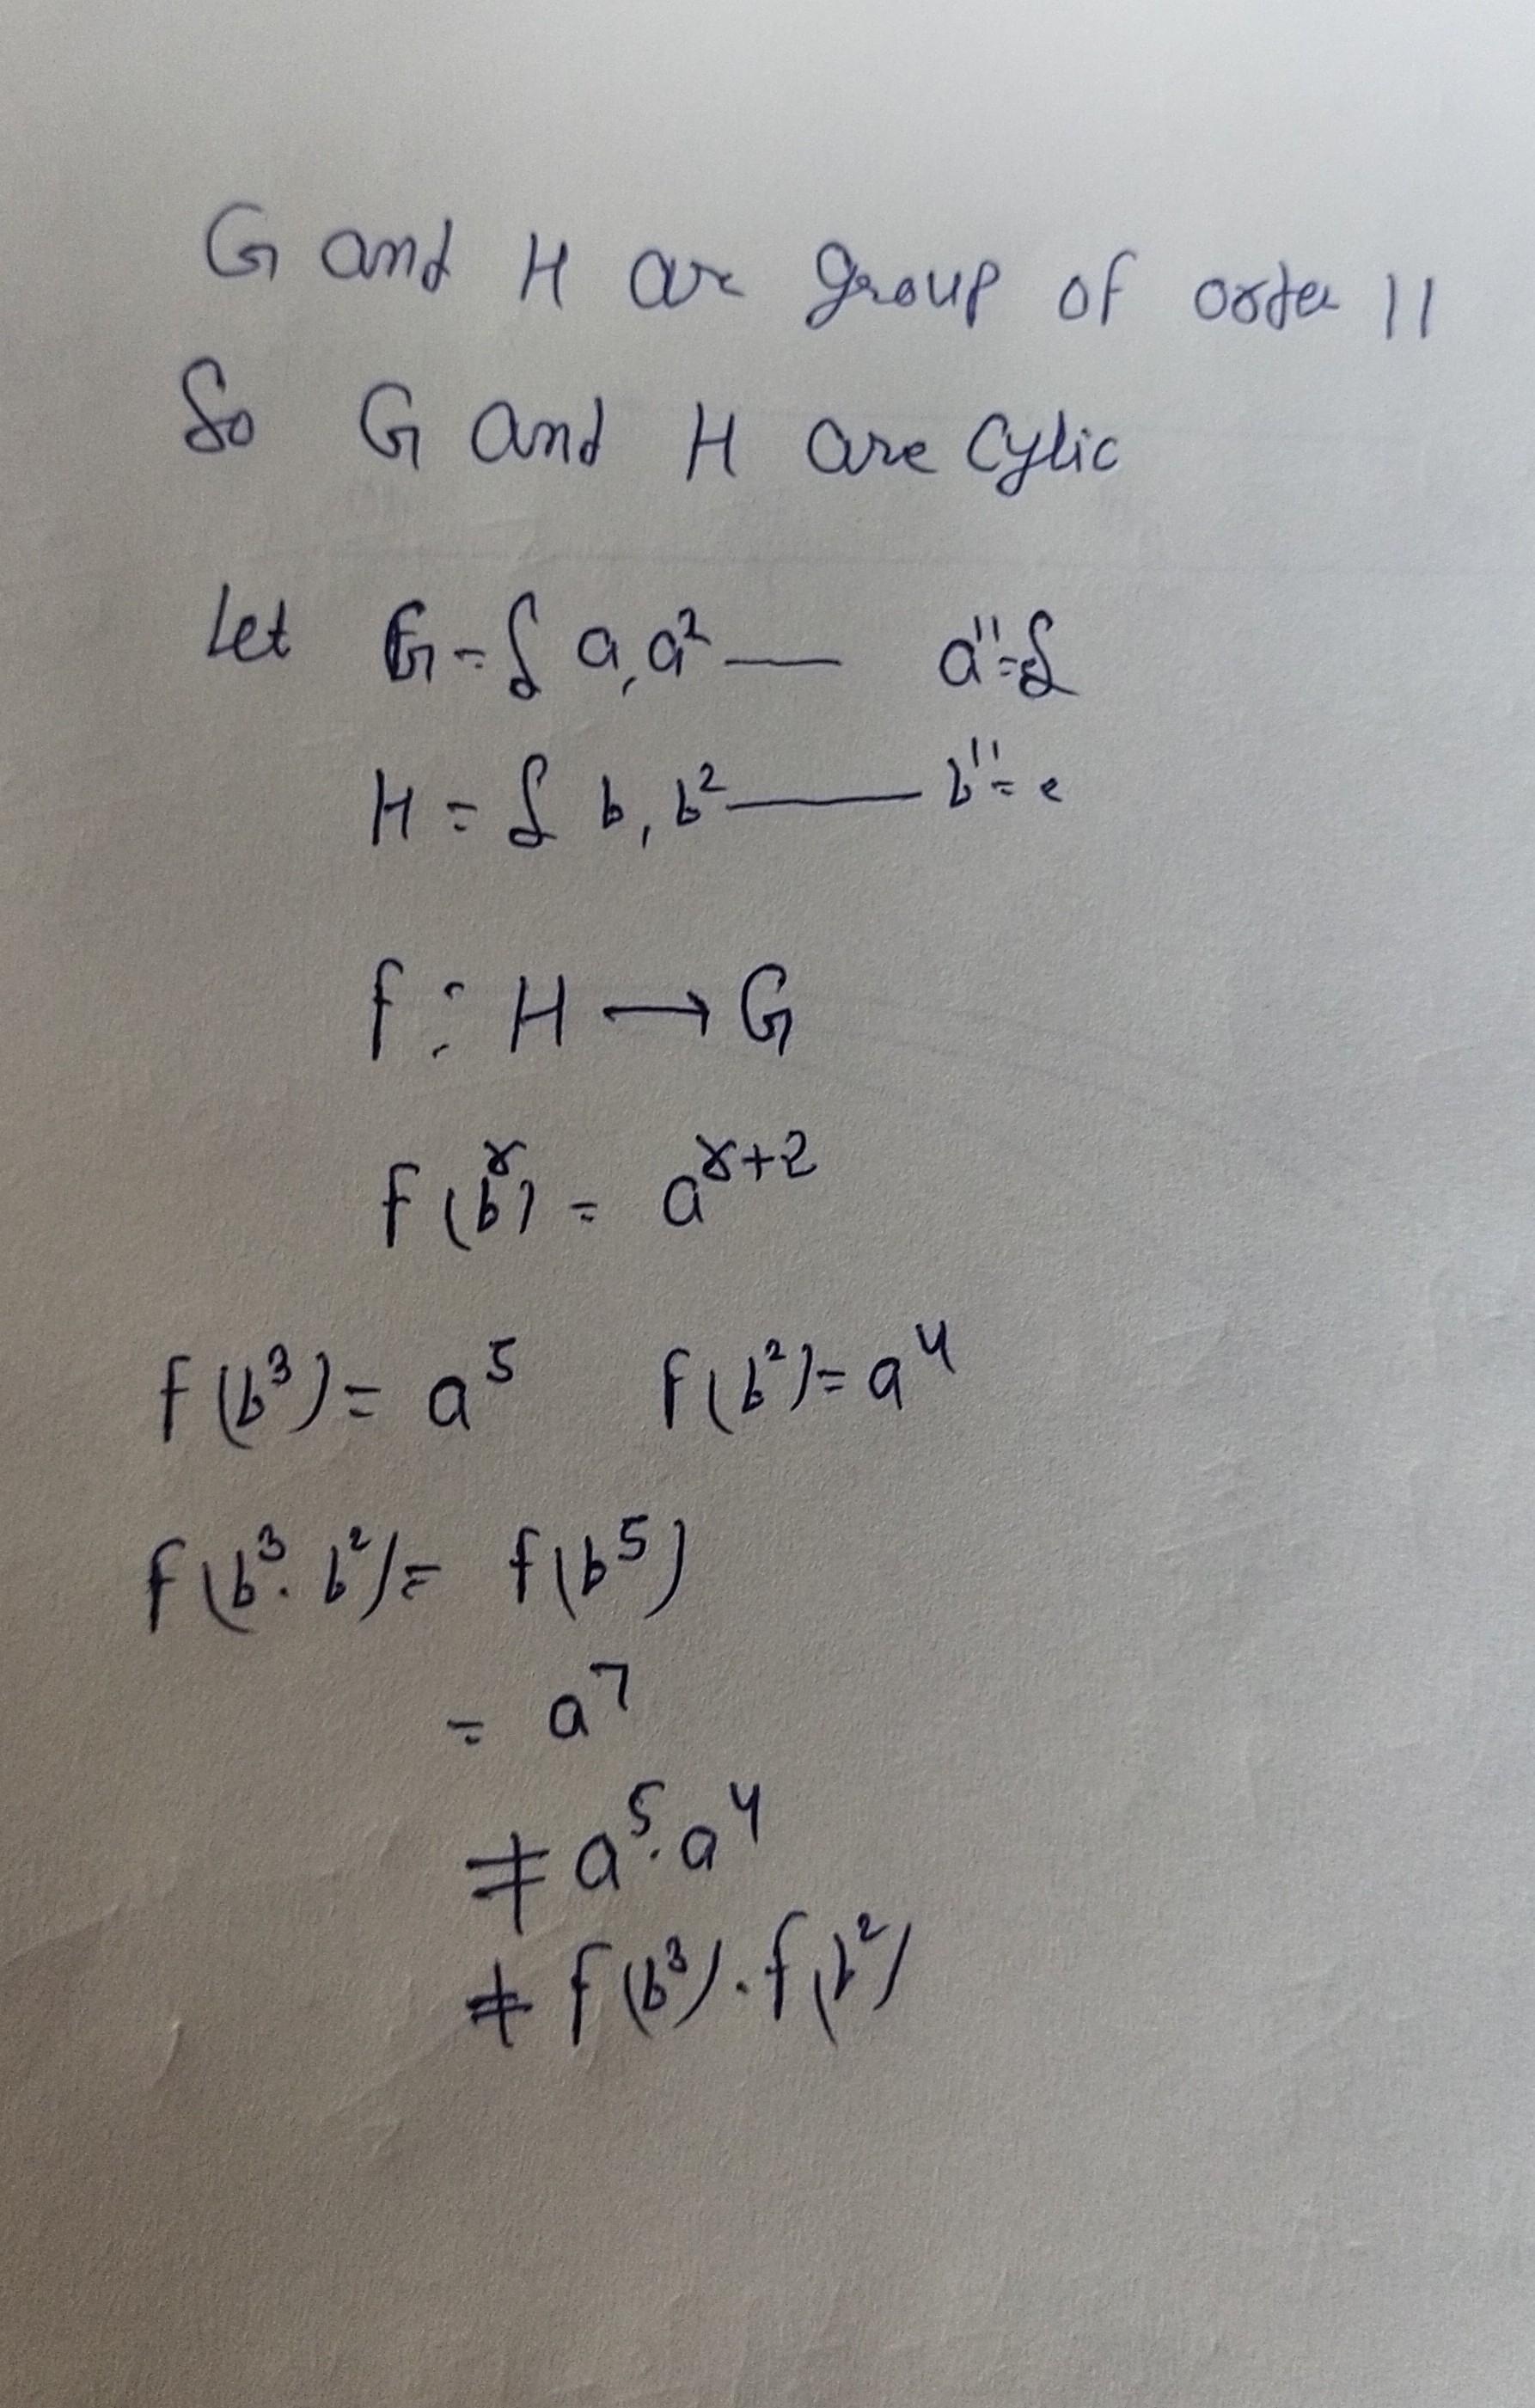 G and H are group of order 11
So G and H are Cylic
Let G = { a, a² — a¹¹ = {
H = { b, b² — b¹¹ = e
f : H → G
f(bʳ) = aʳ⁺²
f(b³) = a⁵ f(b²) = a⁴
f(b³. b²) = f(b⁵)
= a⁷
≠ a⁵. a⁴
≠ f(b³). f(b²)